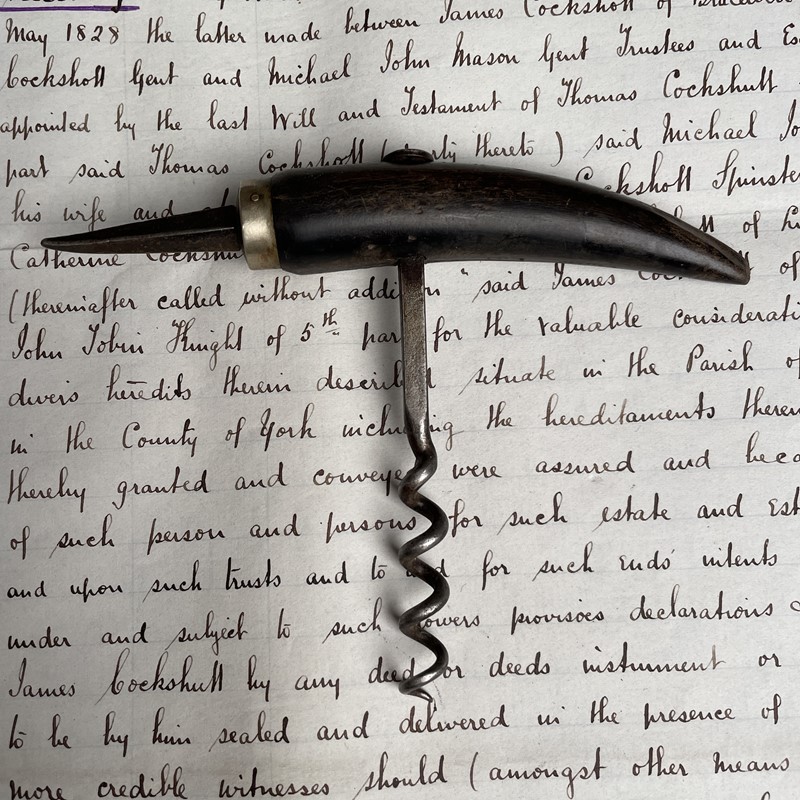 May 1828 the latter made between James Cockshott of
Cockshott Gent and Michael John Mason Gent Trustees and
appointed by the last Will and Testament of Thomas Cockshutt
part said Thomas Cockshott ( thereto ) said Michael
his wife and Cockshott Spinster
Catherine of
(thereinafter called without " said James of
John Tobin Knight of 5th part for the valuable
divers heredits therein situate in the Parish of
in the County of York including the hereditaments
thereby granted and conveyed were assured and
of such person and persons for such estate and
and upon such trusts and to and for such ends intents
under and subject to such powers provisoes declarations
James Cockshutt by any deed or deeds instrument or
to be by him sealed and delivered in the presence of
more credible witnesses should (amongst other means